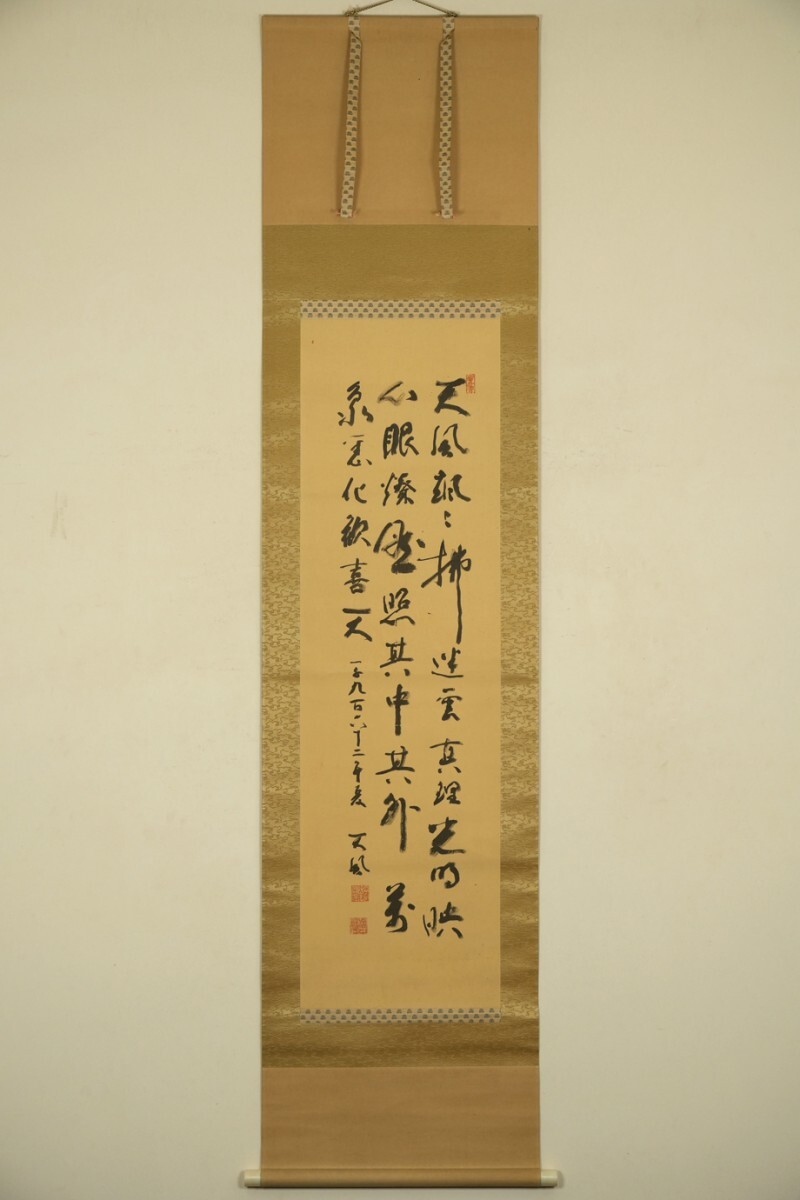 天風颯〻拂迷雲真理光明映
心眼燦然照其中其外萬
象悉化歓喜天
一千九百六十二年夏 天風